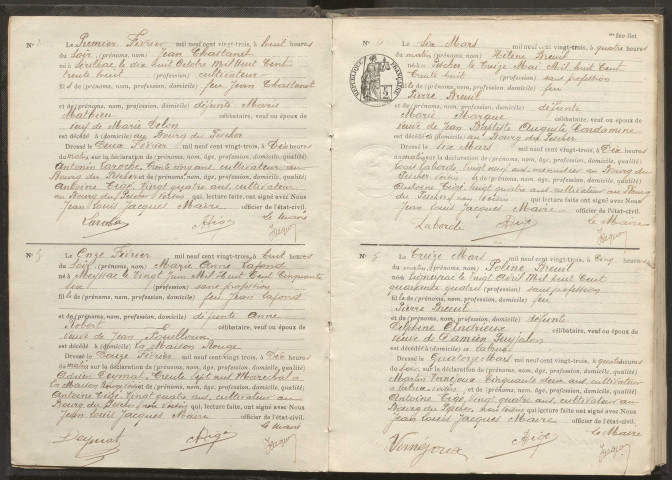 N° 2 Le Premier Février mil neuf cent vingt-trois, à huit heures
du Soir (prénoms, nom) Jean Chastanet
né à Sérilhac, le dix huit Octobre Mil Huit Cent
trente huit (profession) cultivateur
Fils de (prénoms, nom, profession, domicile) feu Jean Chastanet
et de (prénoms, nom, profession, domicile) défunte Marie
Mathieu célibataire, veuf ou époux de
veuf de Marie Solon
est décédé à (domicile) au Bourg du Pescher
Dressé le Deux Février mil neuf cent vingt-trois, à Dix heures
du matin, sur la déclaration de (prénoms, nom, âge, profession, domicile, qualité)
Antonin Laroche, ans, cultivateur au
Bourg du Pescher et de (prénoms, nom, âge, profession, domicile, qualité)
Antoine Tigé, Vingt quatre ans, cultivateur au
Bourg du Pescher, voisins qui, lecture faite, ont signé avec Nous
Jean Louis Jacques Maire officier de l'état-civil.
Le Maire
N° 3 Le Onze Février mil neuf cent vingt-trois, à huit heures
du Soir (prénoms, nom) Marie Anne Lafond
né à Meyssac le Vingt Juin Mil Huit Cent Cinquante
six (profession) sans profession
fille de (prénoms, nom, profession, domicile) feu Jean Lafond
et de (prénoms, nom, profession, domicile) défunte Anne
Robert célibataire, veuf ou époux de
veuve de Jean
est décédé à (domicile) La Maison Rouge
Dressé le Douze Février mil neuf cent vingt-trois, à Dix heures
du matin sur la déclaration de (prénoms, nom, âge, profession, domicile, qualité)
Trente sept ans Maréchal à
la Maison Rouge et de (prénoms, nom, âge, profession, domicile, qualité)
Antoine Tigé, Vingt quatre ans, cultivateur au
Bourg du Pescher qui, lecture faite, ont signé avec Nous
Jean Louis Jacques Maire officier de l'état-civil.
Le Maire
feuillet
N° 4 Le Six Mars mil neuf cent vingt-trois, à quatre heures
du matin (prénoms, nom) Hélène Breuil
né à Pescher, le Treize Mai Mil Huit Cent
Trente huit (profession) sans profession
fille de (prénoms, nom, profession, domicile) feu
Pierre Breuil
et de (prénoms, nom, profession, domicile) défunte
Marie Marque célibataire, veuf ou époux de
veuve de Jean Baptiste Auguste Condamine
est décédé à (domicile) au Bourg du Pescher
Dressé le Six Mars mil neuf cent vingt-trois, à Dix heures
du matin sur la déclaration de (prénoms, nom, âge, profession, domicile, qualité)
Laborde, vingt ans, au Bourg du
Pescher et de (prénoms, nom, âge, profession, domicile, qualité)
Antoine Tigé, vingt quatre ans, cultivateur au Bourg
du Pescher qui, lecture faite, ont signé avec Nous
Jean Louis Jacques Maire officier de l'état-civil.
Le Maire
Laborde
N° 5 Le Treize Mars mil neuf cent vingt-trois, à Cinq heures
du matin (prénoms, nom) Poline Breuil
né à le Vingt Avril Mil huit Cent
quarante quatre (profession) sans profession
fille de (prénoms, nom, profession, domicile) feu
Pierre Breuil
et de (prénoms, nom, profession, domicile) défunte
Delphine Andrieux célibataire, veuf ou époux de
veuve de Damien
est décédé à (domicile)
Dressé le Quatorze Mars mil neuf cent vingt-trois, à heures
du Soir, sur la déclaration de (prénoms, nom, âge, profession, domicile, qualité)
Martin Vernéjoux, Cinquante ans, cultivateur
et de (prénoms, nom, âge, profession, domicile, qualité)
Antoine Tigé, vingt quatre ans, cultivateur au
Bourg du Pescher qui, lecture faite, ont signé avec Nous
Jean Louis Jacques Maire officier de l'état-civil.
Le Maire
Vernéjoux